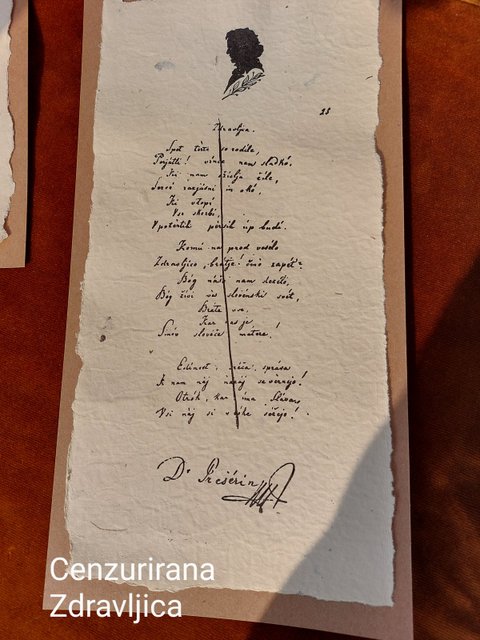 25
Zdravljica.
Spet terte so rodile,
Perjatli! vince nam sladkó,
Ki nam oživlja žile,
Sercé razjásni in okó,
Ki vtopí
Vse skerbí,
V potertih persih úp budí.
Komú na pred veselo
Zdravljico, bratje! čmò zapét'?
Bóg našo nam deželo,
Bóg živi ves slovénski svét,
Brate vse,
Kar nas je
Sinóv slovéče mátere!
Edinost, sréča, správa
K nam náj nazáj se vérnejo!
Otrók, kar ima Sláva,
Vsi náj si v róke séžejo!
Dr Prešérin
Cenzurirana
Zdravljica